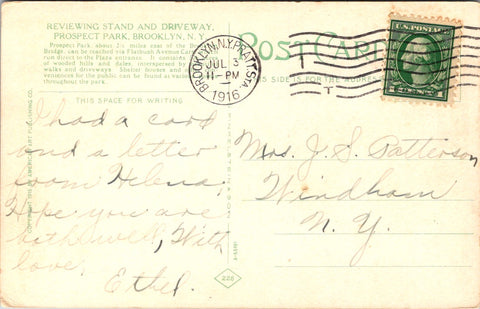 REVIEWING STAND AND DRIVEWAY,
PROSPECT PARK, BROOKLYN, N.Y.
Prospect Park, about 3½ miles east of the Brooklyn
Bridge, can be reached via Flatbush Avenue Cars
run direct to the Plaza entrance. It contains
of wooded hills and dales, interspersed by
walks and driveways. Shelter houses and
veniences for the public can be found at various
throughout the park.
POST CARD
THIS SIDE IS FOR THE ADDRESS
BROOKLYN, N.Y. PRATT STA.
JUL 3
11-PM
1916
U.S. POSTAGE
1
THIS SPACE FOR WRITING
I had a card
and a letter
from Helena,
Hope you are
both well, With
love,
Ethel.
Mrs. J. S. Patterson
Windham
N. Y.
228